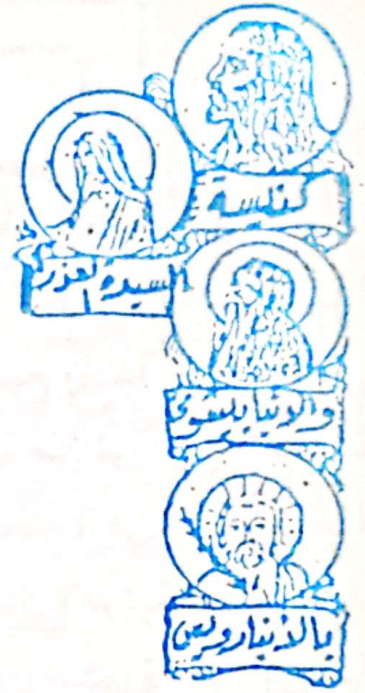 كنيسة
السيدة العذرا
والانبا بيشوى
بالأنبا رويس